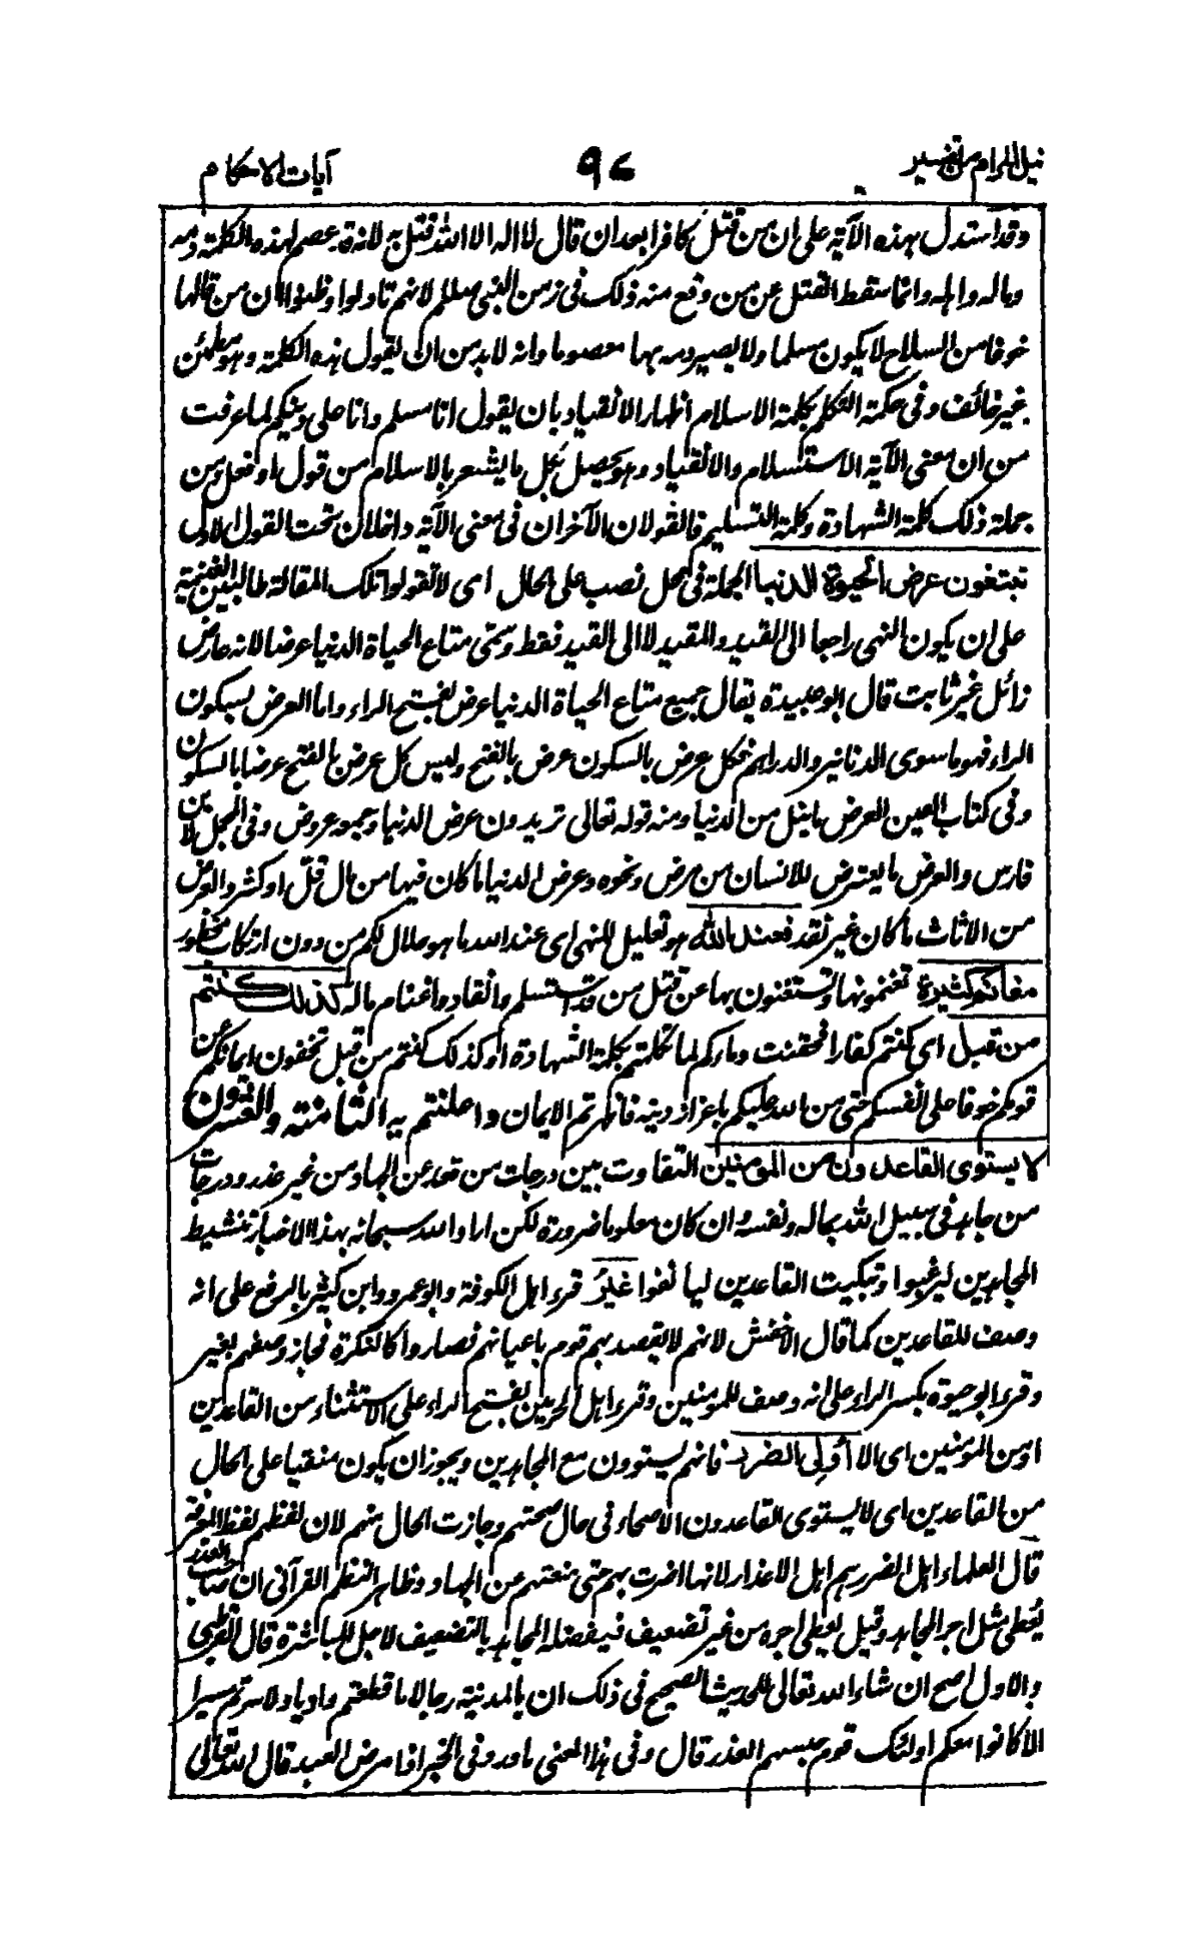 نيل المرام من تفسير
٩٧
آيات الاحكام
وقد استدل بهذه الآية على ان من قتل كافرا بعد ان قال لا اله الا الله قتل به لانه قد عصم بهذه الكلمة دمه
وماله واهله وانما سقط القتل عن من وقع منه ذلك في زمن النبي صللم لانهم تاولوا وظنوا ان من قالها
خوفا من السلاح لا يكون مسلما ولا يصير دمه بها معصوما وانه لا بد من ان يقول هذه الكلمة وهو مطمئن
غير خائف وفي حكمة التكلم بكلمة الاسلام اظهار الانقياد بان يقول انا مسلم وانا على دينكم لما عرفت
من ان معنى الآية الاستسلام والانقياد وهو يحصل بكل ما يشعر بالاسلام من قول او فعل ومن
جملة ذلك كلمة الشهادة وكلمة التسليم فالقولان الآخران في معنى الآية داخلان تحت القول الاول
تبتغون عرض الحيوة الدنيا الجملة في محل نصب على الحال اى لا تقولوا تلك المقالة طالبين الغنيمة
على ان يكون النهي راجعا الى القيد والمقيد لا الى القيد فقط وسمى متاع الحياة الدنيا عرضا لانه عارض
زائل غير ثابت قال ابو عبيدة يقال جميع متاع الحياة الدنيا عرض بفتح الراء واما العرض بسكون
الراء فهو ما سوى الدنانير والدراهم فكل عرض بالسكون عرض بالفتح وليس كل عرض بالفتح عرضا بالسكون
وفي كتاب العين العرض ما نيل من الدنيا ومنه قوله تعالى تريدون عرض الدنيا وجمعه عروض وفي المجمل لابن
فارس والعرض ما يعترض للانسان من مرض ونحوه وعرض الدنيا ما كان فيها من مال قل او كثر والعرض
من الاثاث ما كان غير نقد فعند الله هو تعليل للنهي اى عند الله ما هو حلال لكم من دون ارتكاب محظور
مغانم كثيرة تغنمونها وتستغنون بها عن قتل من قد استسلم وانقاد واغتنام ماله كذلك كنتم
من قبل اى كنتم كفارا فحقنت دماركم لما تكلمتم بكلمة الشهادة او كذلك كنتم من قبل تخفون ايمانكم عن
قومكم خوفا على انفسكم حتى من الله عليكم باعزاز دينه فاظهرتم الايمان واعلنتم به الثامنة والعشرون
لا يستوى القاعدون من المؤمنين التفاوت بين درجات من قعد عن الجهاد من غير عذر ودرجات
من جاهد في سبيل الله بماله ونفسه وان كان معلوما ضرورة لكن اراد الله سبحانه بهذا الاخبار تنشيط
المجاهدين ليرغبوا وتبكيت القاعدين ليانفوا غير قرء اهل الكوفة وابو عمرو وابن كثير بالرفع على انه
وصف للقاعدين كما قال الاخفش لانهم لا يقصد بهم قوم باعيانهم فصاروا كالنكرة فجاز وصفهم بغير
وقرء ابو حيوة بكسر الراء على انه وصف للمومنين وقرء اهل الحرمين بفتح الراء على الاستثناء من القاعدين
او من المومنين اى الا اولى الضرر فانهم يستوون مع المجاهدين ويجوز ان يكون منتصبا على الحال
من القاعدين اى لا يستوى القاعدون الاصحاء في حال صحتهم وجازت الحال منهم لان لفظهم لفظ المعرفة
قال العلماء اهل الضرر هم اهل الاعذار لانها اضرت بهم حتى منعتهم عن الجهاد وظاهر النظم القرآني ان صاحب العذر
يُعطى مثل اجر المجاهد وقيل يعطى اجره من غير تضعيف فيفضله المجاهد بالتضعيف لاجل المباشرة قال القرطبي
والاول اصح ان شاء الله تعالى للحديث الصحيح في ذلك ان بالمدينة رجالا ما قطعتم واديا ولا سرتم مسيرا
الا كانوا معكم اولئك قوم حبسهم العذر قال وفي هذا المعنى ما ورد في الخبر اذا مرض العبد قال الله تعالى